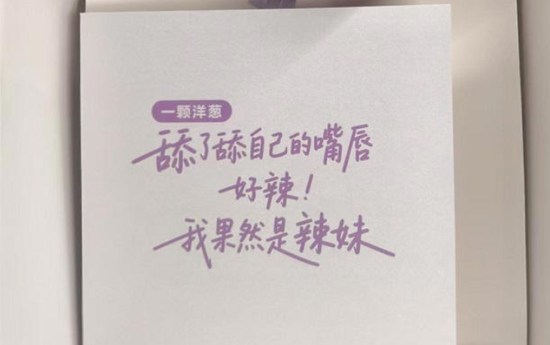 一颗洋葱
舔了舔自己的嘴唇
好辣！
我果然是辣妹